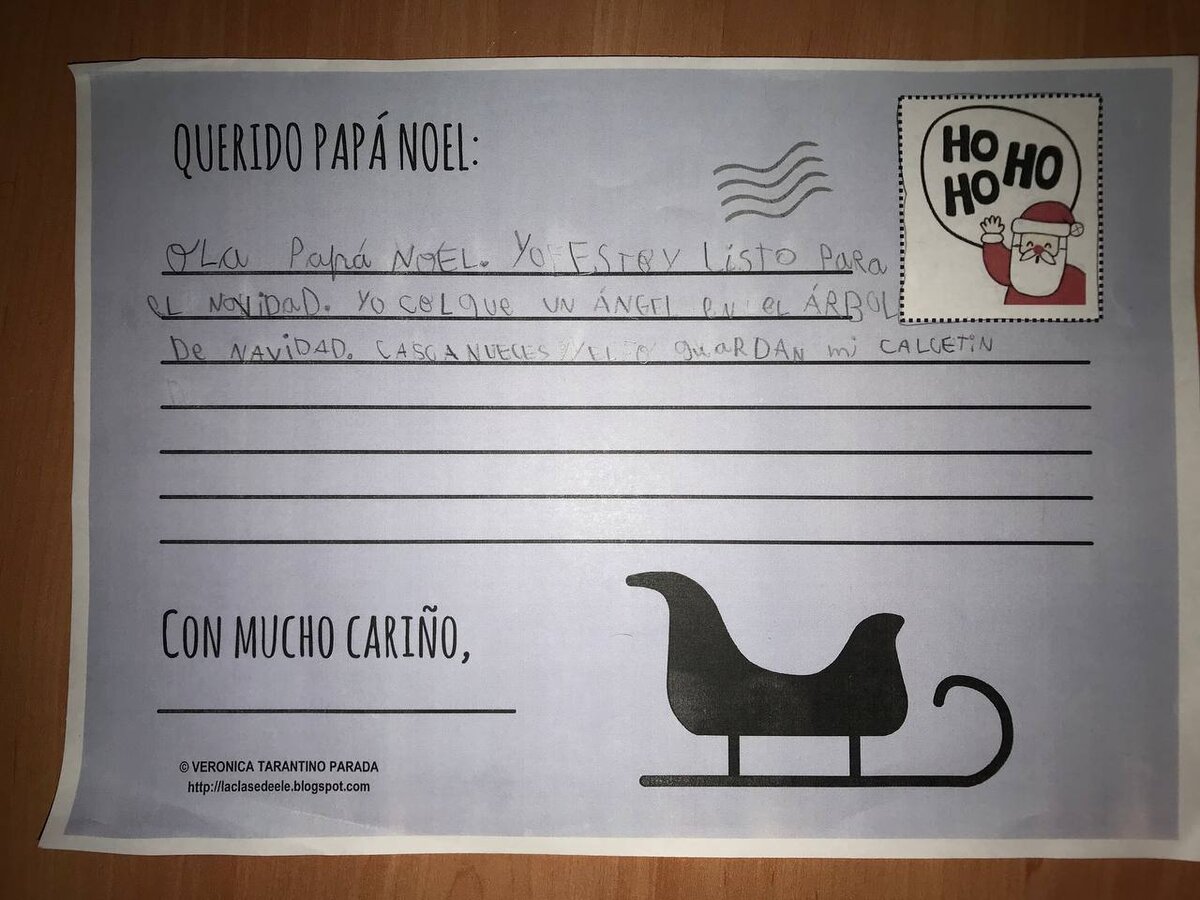 QUERIDO PAPÁ NOEL:
HO HO
HO
OLa Papá NOEL. Yo Estoy Listo Para
el NOViDaD. Yo COLque UN ÁNGEL en el ÁRBOL
De NAViDAD. CASCANUECES guaRDAN mi CALCETIN
CON MUCHO CARIÑO,
© VERONICA TARANTINO PARADA
http://laclasedeele.blogspot.com